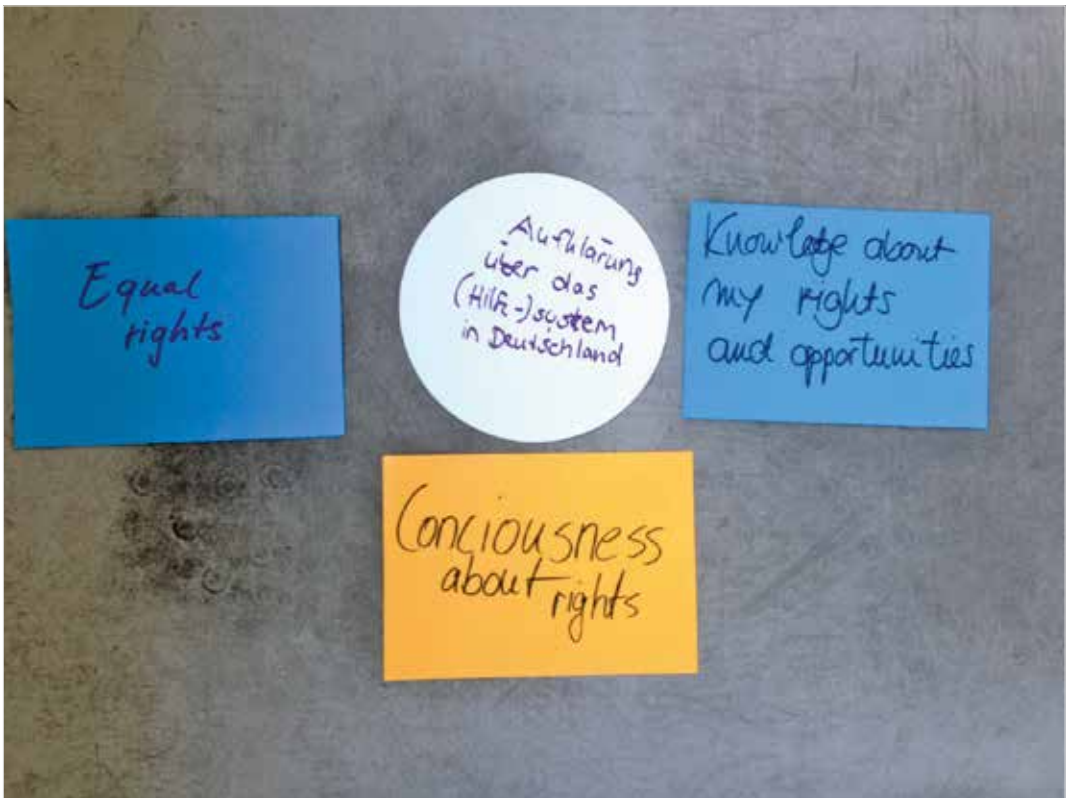 Equal
rights
Aufklärung
über das
(Hilfe-)system
in Deutschland
Knowledge about
my rights
and opportunities
Conciousness
about rights